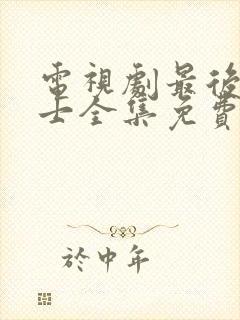 電視劇最後
士全集免費
於中年